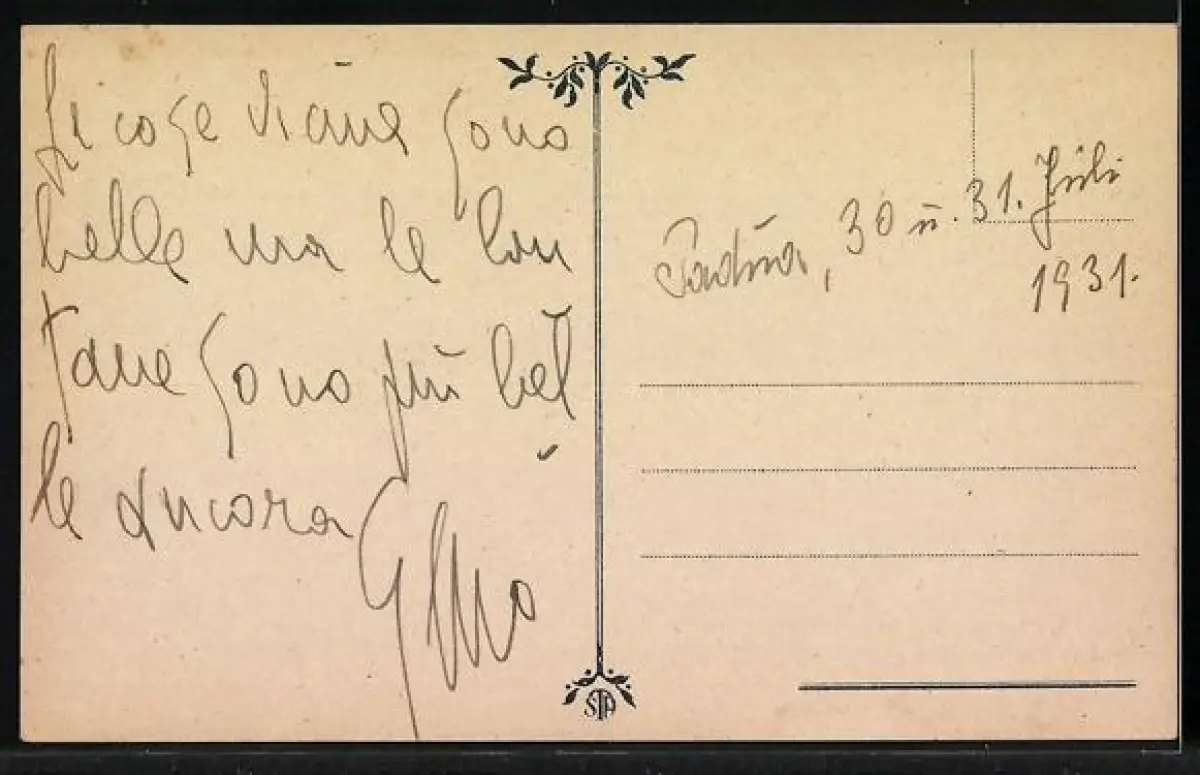 Le cose viane sono
belle ma le lon
tane sono più bel
le ancora
Padua, 30 u. 31. Juli
1931.
STA